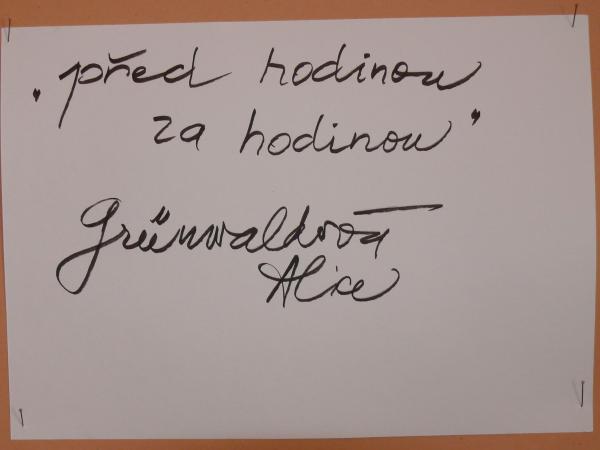 "před hodinou
za hodinou"
Grünwaldová
Alice